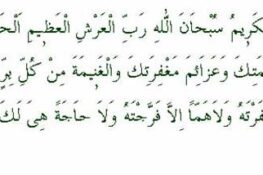 كَرِيمُ سُبْحَانَ اللهِ رَبِّ الْعَرْشِ الْعَظِيمِ
وَعَزَائِمَ مَغْفِرَتِكَ وَالْغَنِيمَةَ مِنْ كُلِّ بِرٍّ
وَلَاهَمًّا اِلاَّ فَرَّجْتَهُ وَلَا حَاجَةً هِىَ لَكَ